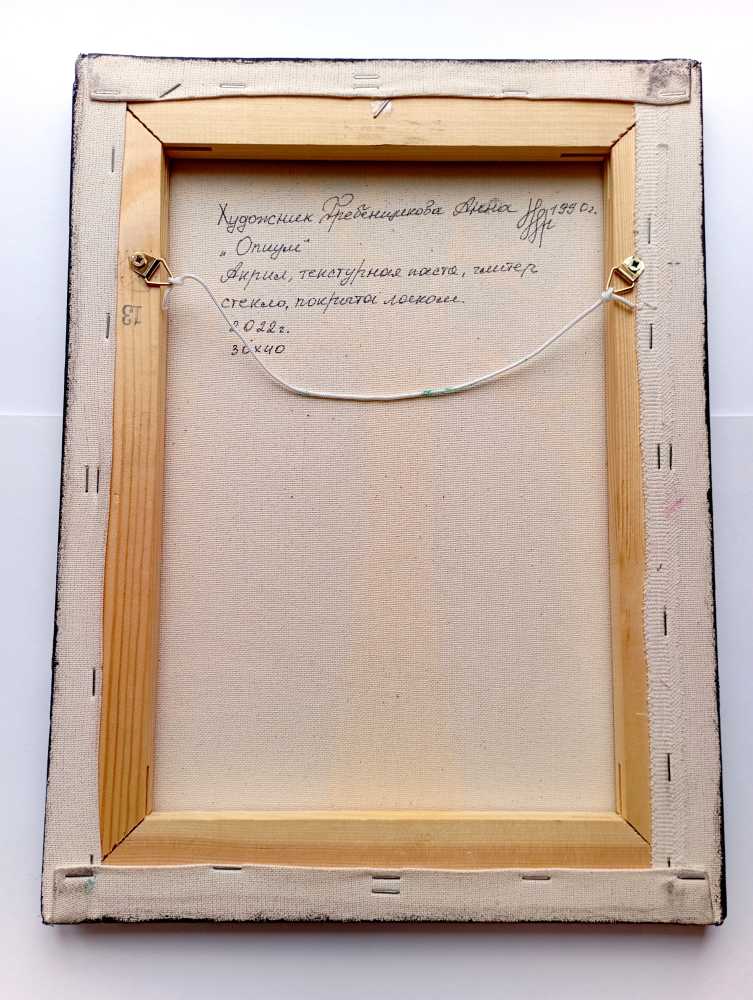 Художник Гребенщикова Анна 1990г.
„Опиум"
Акрил, текстурная паста, глитер
стекло, покрыта лаком.
2022г.
30х40
13